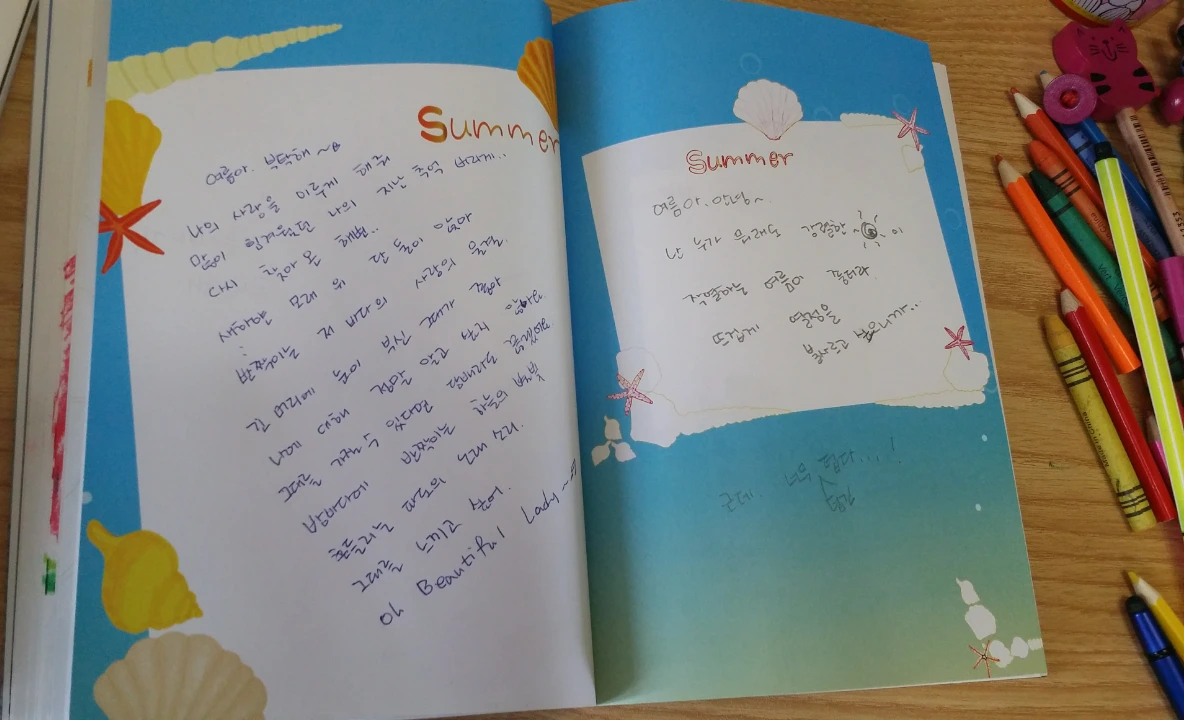 Summer
여름아. 부탁해 ~
나의 사랑을 이루게 해줘
많이 힘겨웠던 나의 지난 추억 버리게..
다시 찾아온 해변..
새하얀 모래 위 단 둘이 앉아
반짝이는 저 바다의 사랑의 물결.
긴 머리에 눈이 부신 그대가 좋아
너에 대해 정말 알고 싶어 음~아~예.
그대를 가질 수 있다면 담배라도 끊겠어요
밤바다에 반짝이는 하늘의 별빛
흔들리는 파도의 노래 소리.
그대를 느끼고 싶어.
oh Beautiful Lady ~
Summer
여름아. 안녕~
난 누가 뭐래도 강렬한 이
작열하는 여름이 좋더라.
뜨겁게 열정을
불사르고 싶으니까..
근데.. 너무 덥다....!